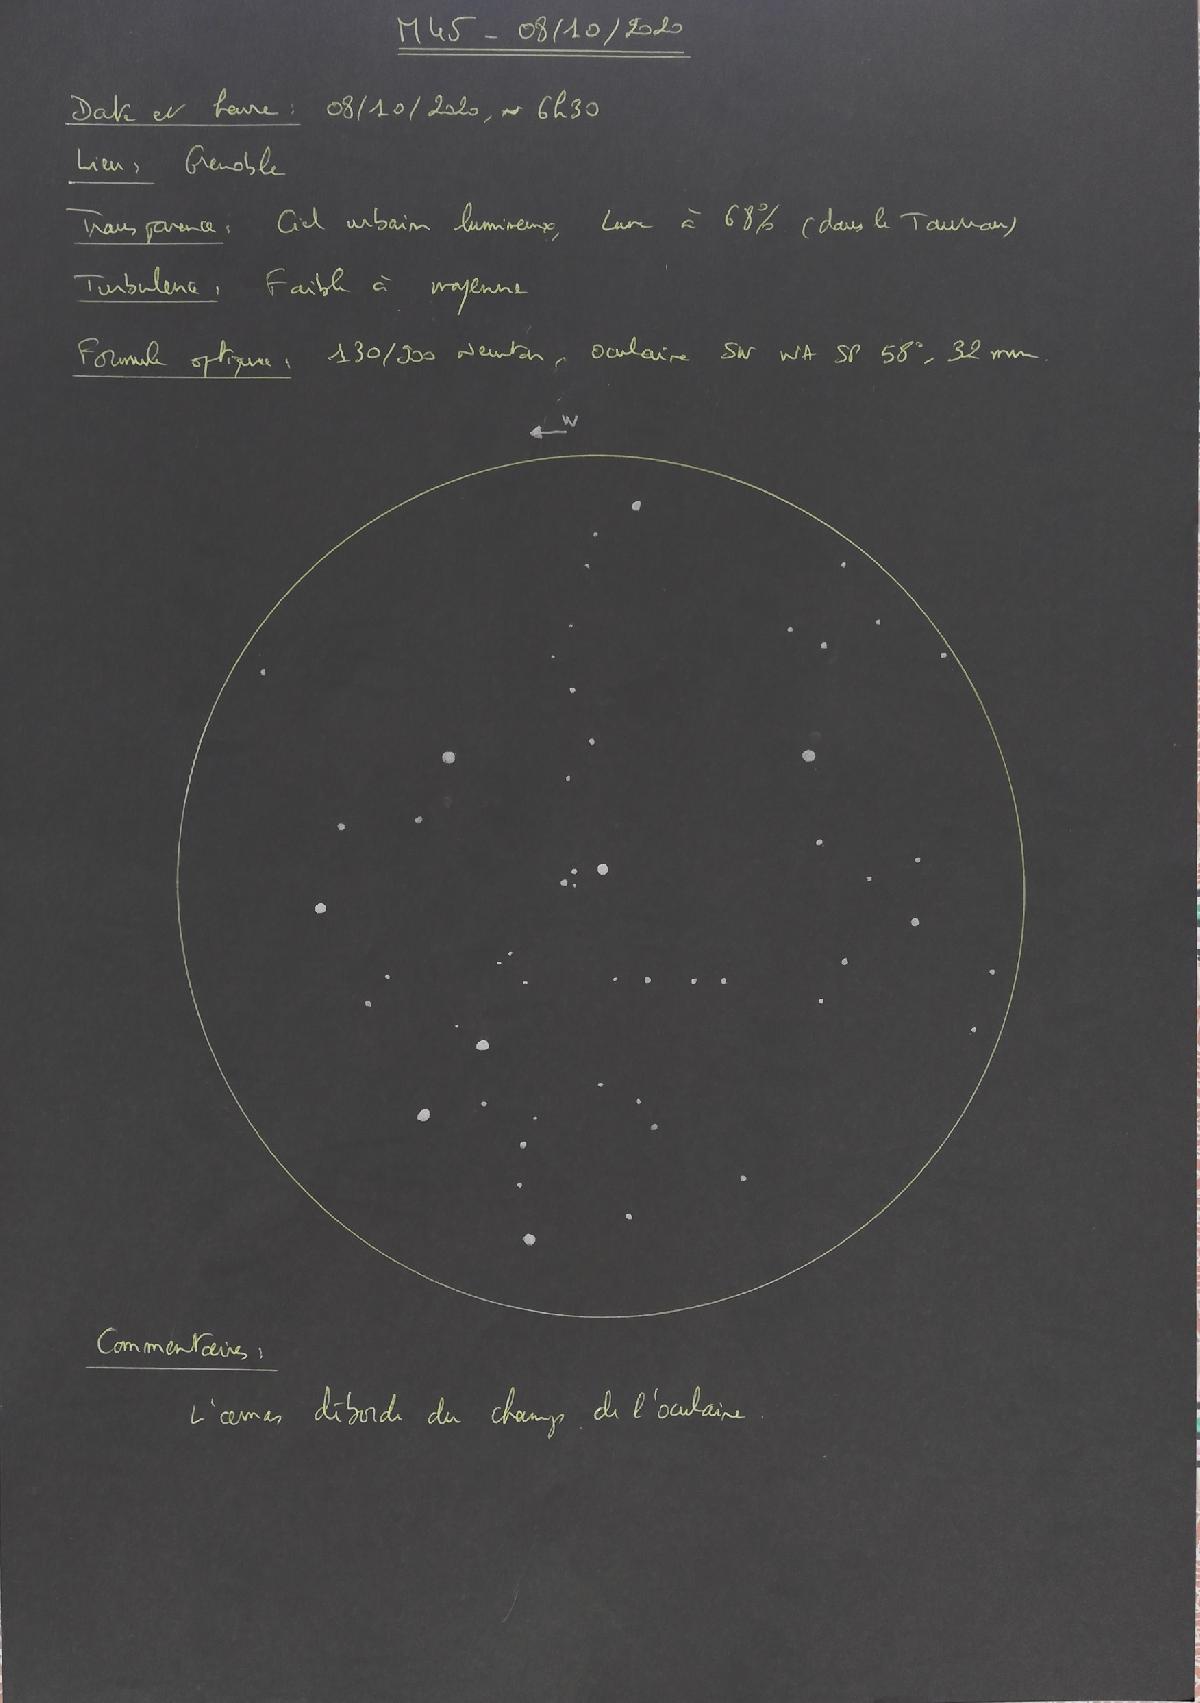 M45 - 08/10/2020
Date et heure : 08/10/2020, ~ 6h30
Lieu : Grenoble
Transparence : Ciel urbain lumineux, Lune à 68% (dans le Taureau)
Turbulence : Faible à moyenne
Formule optique : 130/900 Newton, oculaire SW WA SP 58°, 32 mm.
← W
Commentaires :
L'amas déborde du champ de l'oculaire.